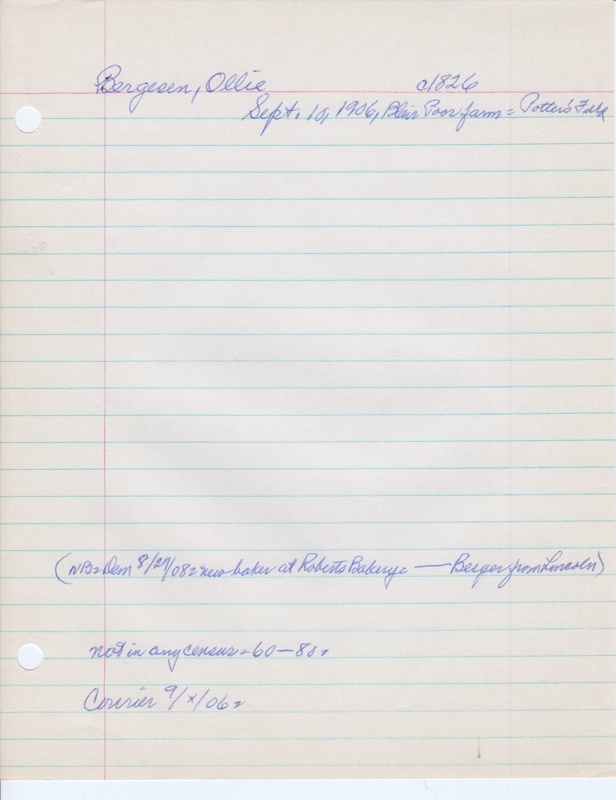 Bergesen, Ollie c1826
Sept. 10, 1906, Blair Poor farm = Potter's Field
(NB= Dem 8/27/08 = new baker at Roberts Bakery = — Berger from Lincoln)
not in any census = 60-80 =
Courier 9/x/06 =